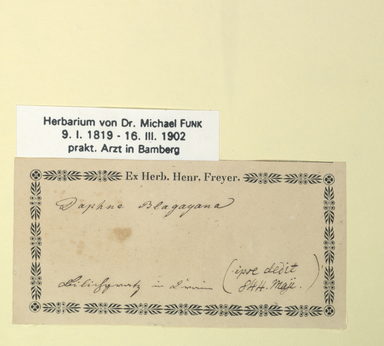 Herbarium von Dr. Michael FUNK
9. I. 1819 - 16. III. 1902
prakt. Arzt in Bamberg
Ex Herb. Henr. Freyer.
Daphne Blagayana
(ipse dedit
in
844. Maji.)